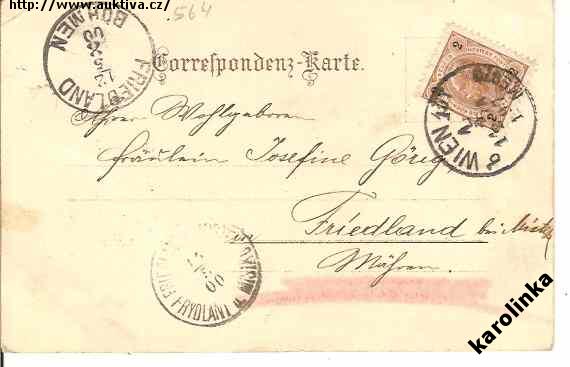 http://www.auktiva.cz/
564
FRIEDLAND
BÖHMEN
Correspondenz-Karte.
2
WIEN
Ihrer Wohlgeboren
Fräulein Josefine Görig
Friedland bei Mistek
Mähren
FRYDLANT
karolinka